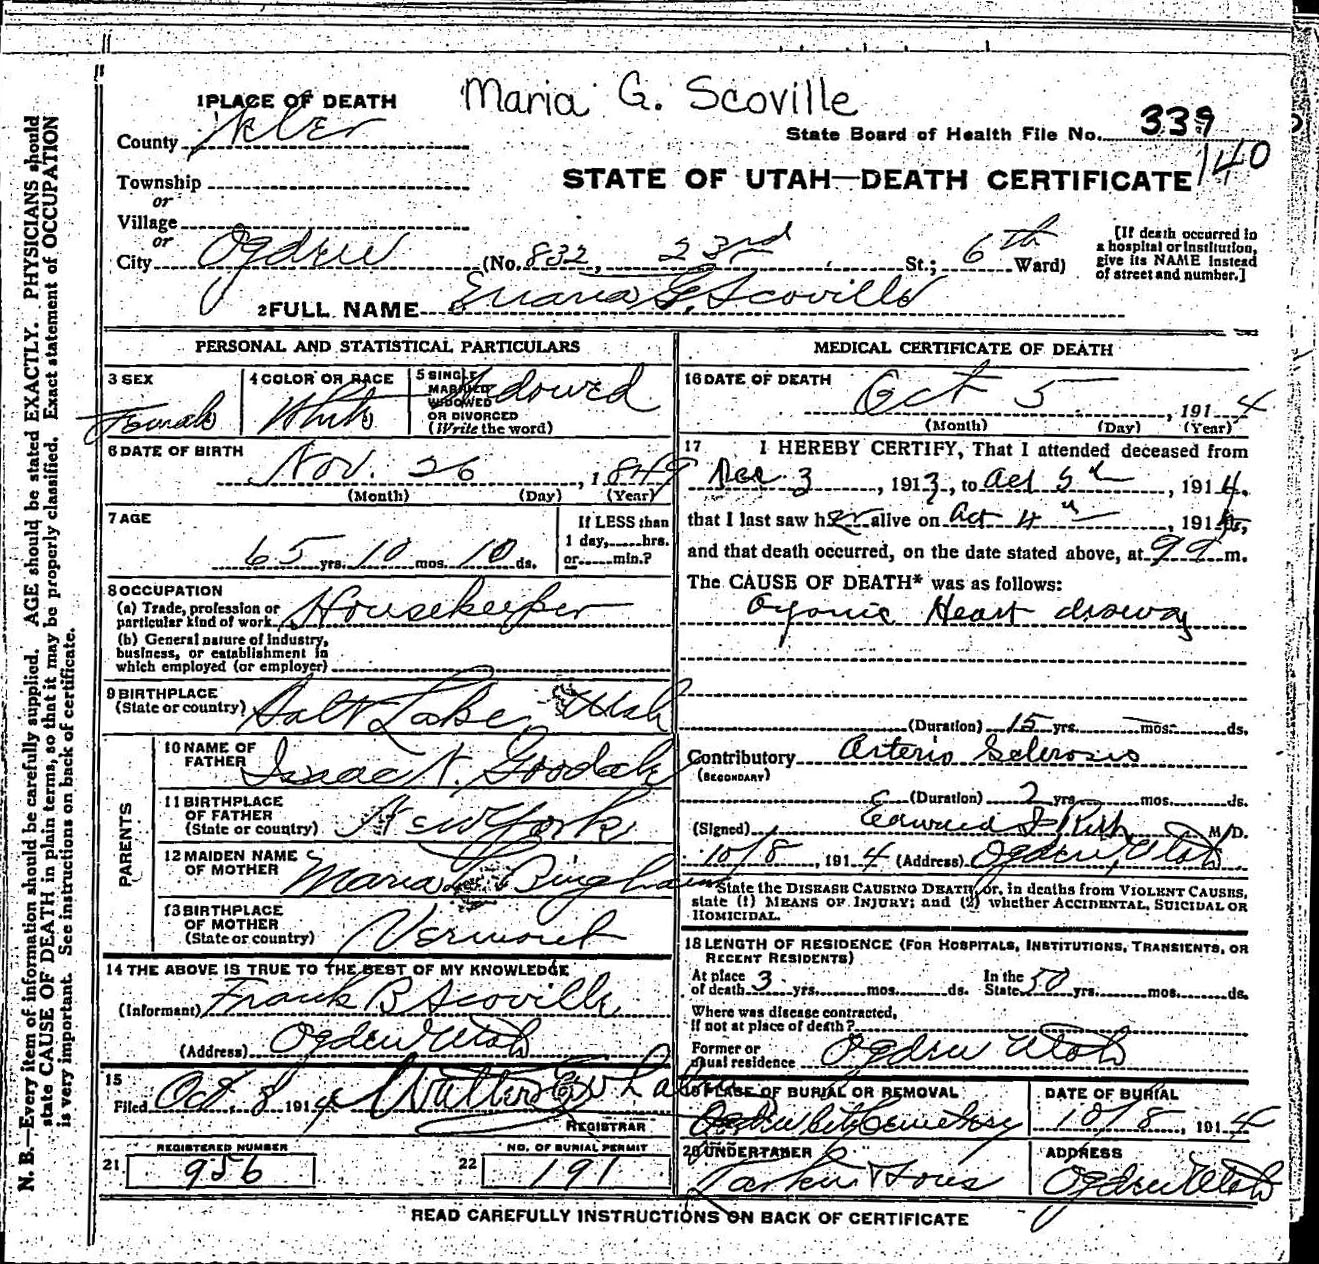 Maria G. Scoville
1 PLACE OF DEATH
County
State Board of Health File No. 339
140
Township
or
STATE OF UTAH—DEATH CERTIFICATE
Village
or
City Ogden (No. 832, 23rd St.; 6th Ward)
[If death occurred in
a hospital or institution,
give its NAME instead
of street and number.]
2 FULL NAME Maria G. Scoville
PERSONAL AND STATISTICAL PARTICULARS
3 SEX
Female
4 COLOR OR RACE
White
5 SINGLE
MARRIED
WIDOWED
OR DIVORCED
(Write the word)
Widowed
6 DATE OF BIRTH
Nov. 26, 1849
(Month) (Day) (Year)
7 AGE
65 yrs. 10 mos. 10 ds.
If LESS than
1 day, hrs.
or min.?
8 OCCUPATION
(a) Trade, profession or
particular kind of work Housekeeper
(b) General nature of industry,
business, or establishment in
which employed (or employer)
9 BIRTHPLACE
(State or country) Salt Lake, Utah
PARENTS
10 NAME OF
FATHER Isaac N. Goodale
11 BIRTHPLACE
OF FATHER
(State or country) New York
12 MAIDEN NAME
OF MOTHER Maria Bingham
13 BIRTHPLACE
OF MOTHER
(State or country) Vermont
14 THE ABOVE IS TRUE TO THE BEST OF MY KNOWLEDGE
(Informant) Frank B Scoville
(Address) Ogden Utah
15
Filed Oct. 8 1914 Walter E Whalen
REGISTRAR
REGISTERED NUMBER
21 956
NO. OF BURIAL PERMIT
22 191
MEDICAL CERTIFICATE OF DEATH
16 DATE OF DEATH
Oct 5, 1914
(Month) (Day) (Year)
17 I HEREBY CERTIFY, That I attended deceased from
Dec 3, 1913, to Oct 5th, 1914,
that I last saw her alive on Oct 4th, 1914,
and that death occurred, on the date stated above, at m.
The CAUSE OF DEATH* was as follows:
Heart
(Duration) 15 yrs. mos. ds.
Contributory Arterio Sclerosis
(SECONDARY)
(Duration) 2 yrs. mos. ds.
(Signed) Edward I Rich M.D.
10/8, 1914 (Address) Ogden, Utah
*State the DISEASE CAUSING DEATH, or, in deaths from VIOLENT CAUSES,
state (1) MEANS OF INJURY; and (2) whether ACCIDENTAL, SUICIDAL OR
HOMICIDAL.
18 LENGTH OF RESIDENCE (FOR HOSPITALS, INSTITUTIONS, TRANSIENTS, OR
RECENT RESIDENTS)
At place
of death 3 yrs. mos. ds.
In the
State 50 yrs. mos. ds.
Where was disease contracted,
if not at place of death?
Former or
usual residence Ogden Utah
19 PLACE OF BURIAL OR REMOVAL
Ogden City Cemetery
DATE OF BURIAL
10/8, 1914
20 UNDERTAKER
ADDRESS
Ogden Utah
READ CAREFULLY INSTRUCTIONS ON BACK OF CERTIFICATE
N. B.—Every item of information should be carefully supplied. AGE should be stated EXACTLY. PHYSICIANS should
state CAUSE OF DEATH in plain terms, so that it may be properly classified. Exact statement of OCCUPATION
is very important. See instructions on back of certificate.